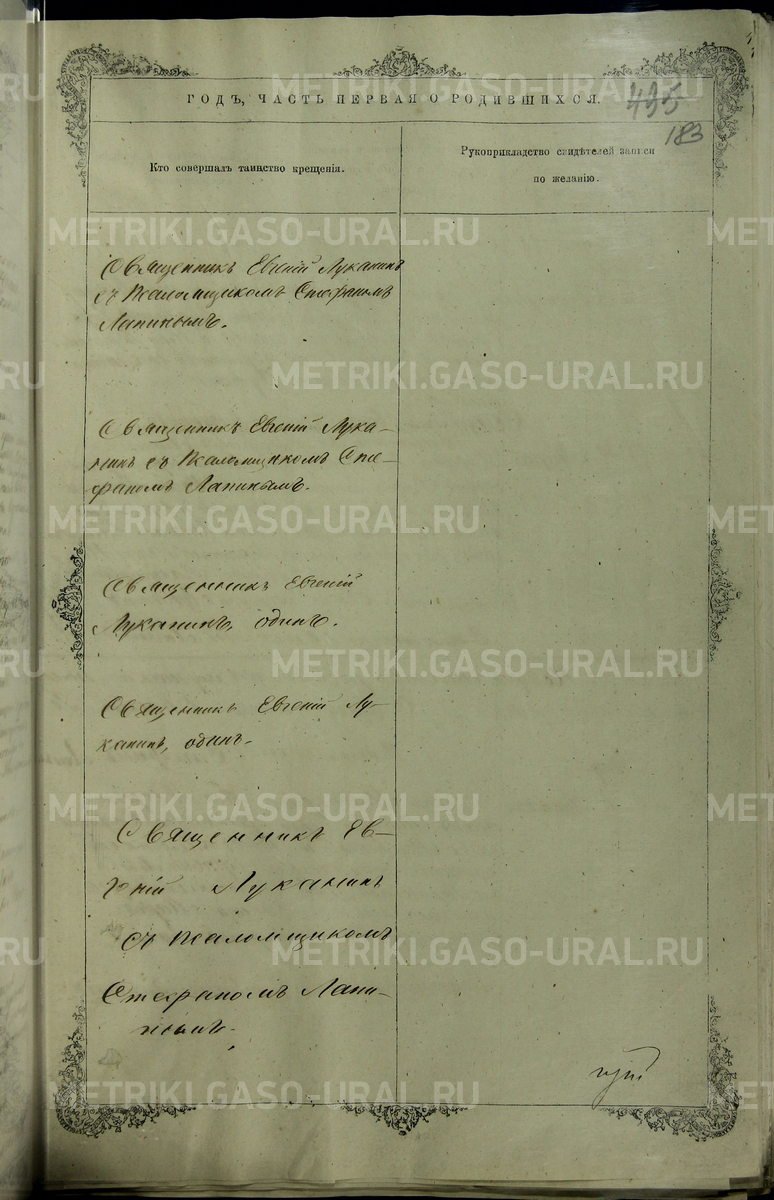 ГОДЪ, ЧАСТЬ ПЕРВАЯ О РОДИВШИХСЯ.
435
183
Кто совершалъ таинство крещенія.
Рукоприкладство свидѣтелей записи
по желанію.
Священникъ Евгеній Луканинъ
съ Псаломщикомъ Стефаномъ
Лапинымъ.
Священникъ Евгеній Лука-
нинъ съ Псаломщикомъ Сте-
фаномъ Лапинымъ.
Священникъ Евгеній
Луканинъ, одинъ.
Священникъ Евгеній Лу-
канинъ, одинъ.
Священникъ Ев-
геній Луканинъ
съ Псаломщикомъ
Стефаномъ Лапи-
нымъ.
METRIKI.GASO-URAL.RU